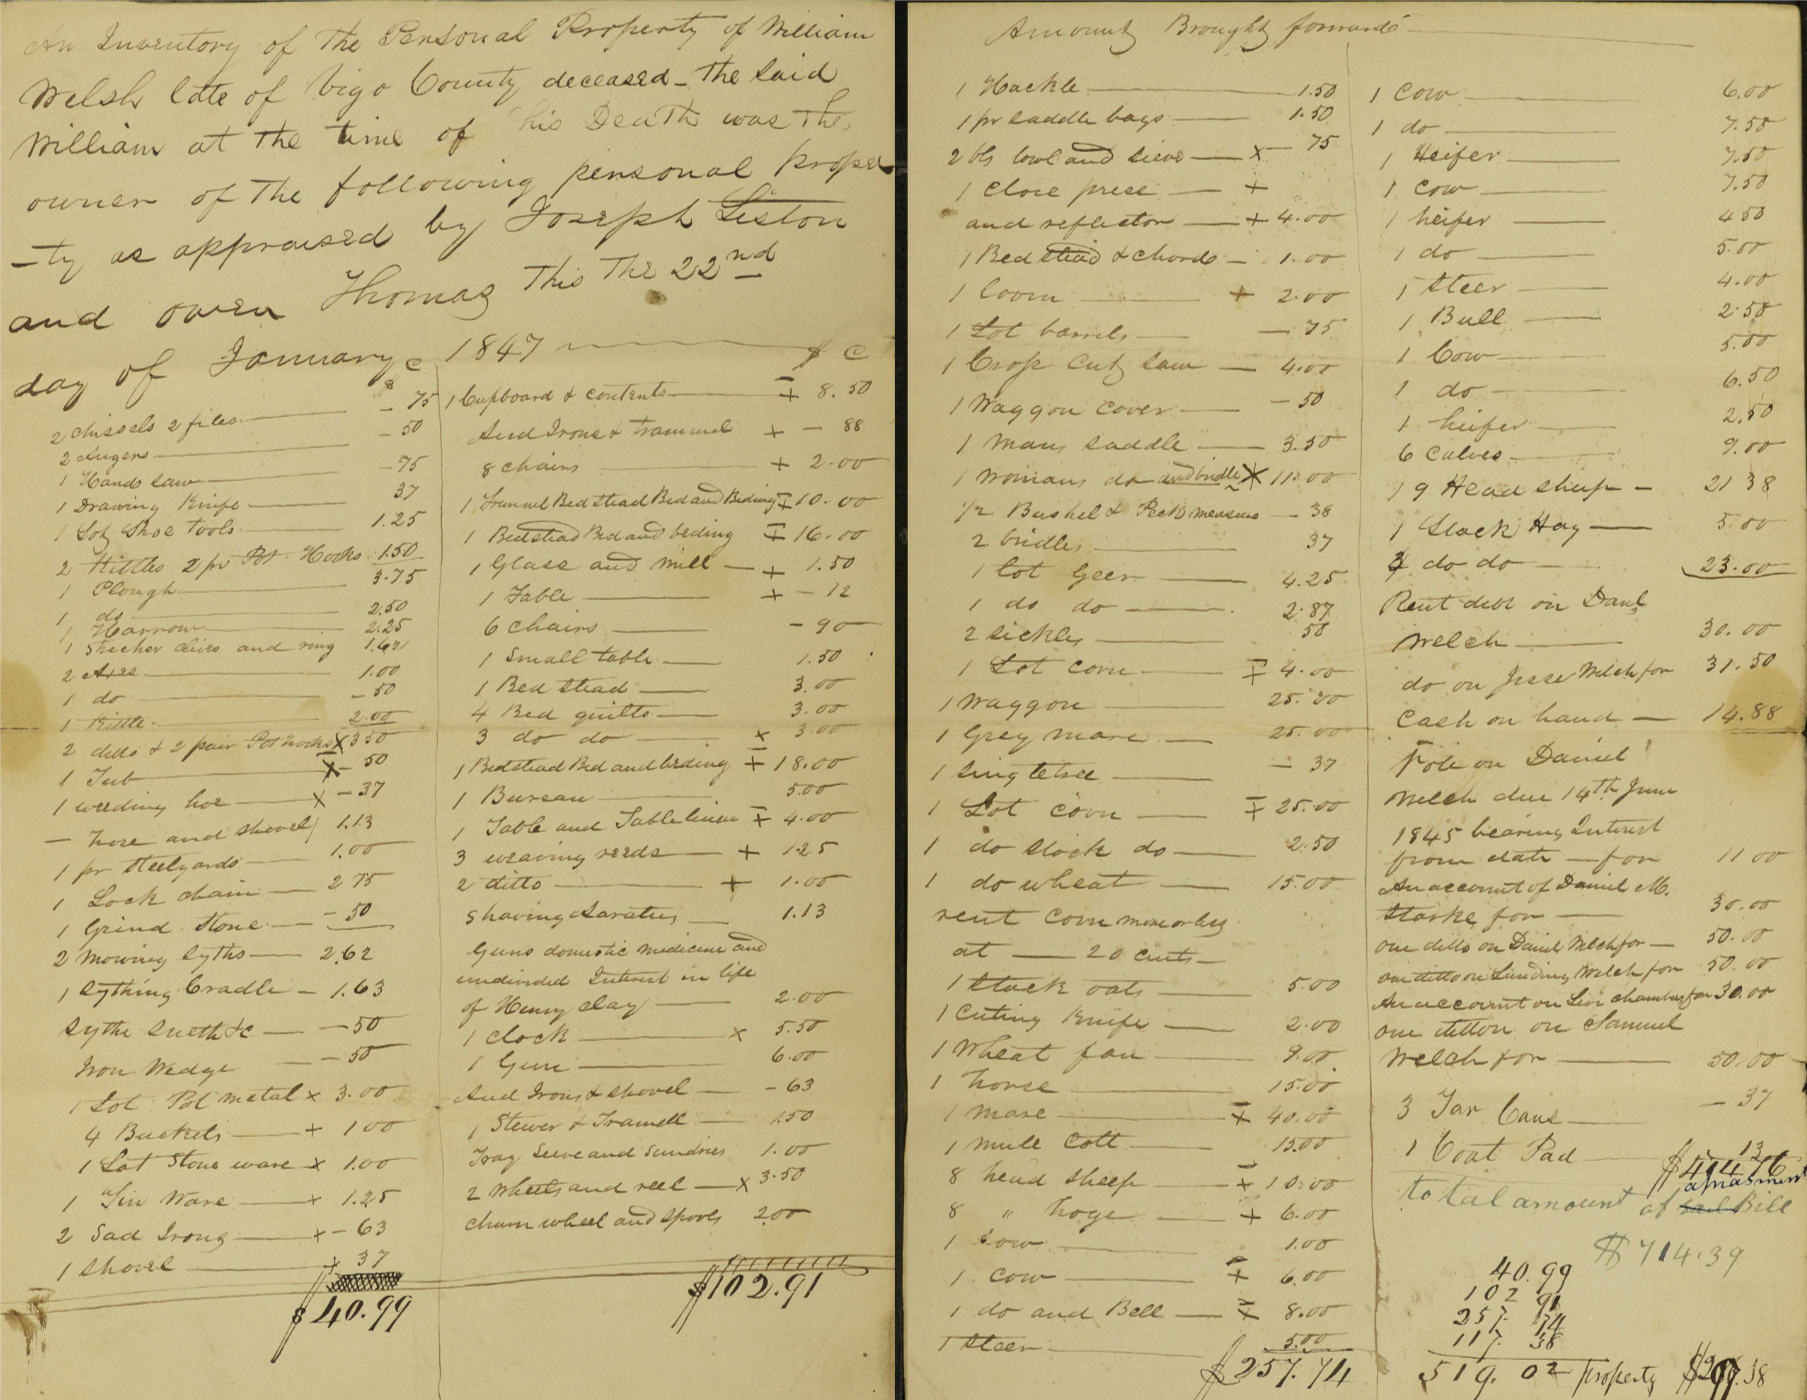 An Inventory of The Personal Property of William
Welsh late of Vigo County deceased - the said
William at the time of his Death was the
owner of the following personal proper
-ty as appraised by Joseph Liston
and owen Thomas This The 22nd
day of January 1847 $ C
$ c
2 chissels 2 files - 75
2 Augers - 50
1 Hand saw - 75
1 Drawing Knife 37
1 Lot Shoe Tools 1.25
2 Kittles 2 pr Pot Hooks 1.50
1 Plough 3.75
1 do 2.50
1 Harrow 2.25
1 Strecher clives and ring 1.62
2 Axes 1.00
1 do - 50
1 Kittle 2.00
2 ditto & 2 pair Pothooks X 3 50
1 Tub X - 50
1 weeding hoe X - 37
- hoe and shovel 1.13
1 pr steelyards 1.00
1 Lock chain 2 75
1 Grind Stone - 50
2 Mowing Syths 2.62
1 Sything Cradle - 1.63
Sythe Sneth &c - 50
Iron Wedge - 50
1 Lot Pot metal x 3.00
4 Buckets + 1 00
1 Lot Stone ware x 1.00
1 " Tin Ware + 1.25
2 Sad Irons + - 63
1 shovel + 37
$ 40.99
1 Cupboard & contents + 8.50
And Irons & trammel + - 88
8 chairs + 2.00
1 Trunnel Bed stead Bed and Beding + 10.00
1 Bedstead Bed and beding + 16.00
1 Glass and mill + 1.50
1 Table + - 12
6 chairs - 90
1 Small table 1.50
1 Bed stead 3.00
4 Bed quilts 3.00
3 do do x 3.00
1 Bedstead Bed and beding + 18.00
1 Bureau 5.00
1 Table and Table linen + 4.00
3 weaving reeds + 1.25
2 ditto + 1.00
shaving Aaratus 1.13
Guns domestic medicine and
undivided Interest in life
of Henry Clay 2.00
1 clock x 5.50
1 Gun 6.00
And Irons & shovel - 63
1 Stewer & Tramell 1.50
Tray Seive and Sundries 1.00
2 wheels and reel x 3.50
churn wheel and spools 2.00
$102.91
Amount Brought forward
1 Hackle 1.50
1 pr saddle bags 1.50
2 bls bowl and sieve x - 75
1 Close press +
and reflector + 4.00
1 Bed stead & chords 1.00
1 loom + 2.00
1 Lot barrels - 75
1 Cross Cut saw 4.00
1 Waggon cover - 50
1 mans saddle 3.50
1 womans do and bridle X 11.00
1/2 Bushel & Peck measure - 38
2 bridles 37
1 lot Geer 4.25
1 do do 2.87
2 sickles 50
1 Lot corn + 4.00
1 Waggon 25.00
1 Grey mare 25.00
1 singletree - 37
1 Lot corn + 25.00
1 do stock do 2.50
1 do wheat 15.00
rent corn more or less
at 20 cents
1 stack oats 5.00
1 Cuting Knife 2.00
1 Wheat fan 9.00
1 horse 15.00
1 mare + 40.00
1 mule Colt 15.00
8 head sheep + 10.00
8 " hogs + 6.00
1 sow 1.00
1 cow + 6.00
1 do and Bell + 8.00
1 steer 5.00
$257.74
1 Cow 6.00
1 do 7.50
1 Heifer 7.50
1 cow 7.50
1 heifer 4 50
1 do 5.00
1 Steer 4.00
1 Bull 2.50
1 Cow 5.00
1 do 6.50
1 heifer 2.50
6 Calves 9.00
19 Head sheep - 21 38
1 Stack Hay 5.00
do do 23.00
Rent debt on Danl
Welch 30.00
do on Jesse Welch for 31.50
Cash on hand 14.88
Note on Daniel
Welch due 14th June
1845 bearing Interest
from date - for 11 00
An account of Daniel M.
Starke for 30.00
one ditto on Daniel Welch for 50.00
one ditto on Welch for 50.00
An account on Levi chambers for 30.00
one ditton on Samuel
Welch for 50.00
3 Tar Cans - 37
1 Coat Pad 13
$414 76
total amount of sail apprasment Bill
$714.39
40.99
102 91
257. 74
117. 38
519. 02 property